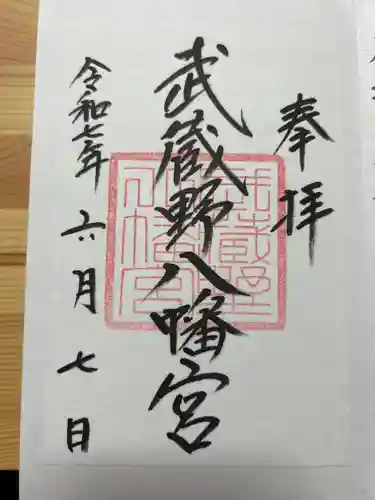 奉拝
武蔵野八幡宮
令和七年六月七日
武蔵野
八幡宮